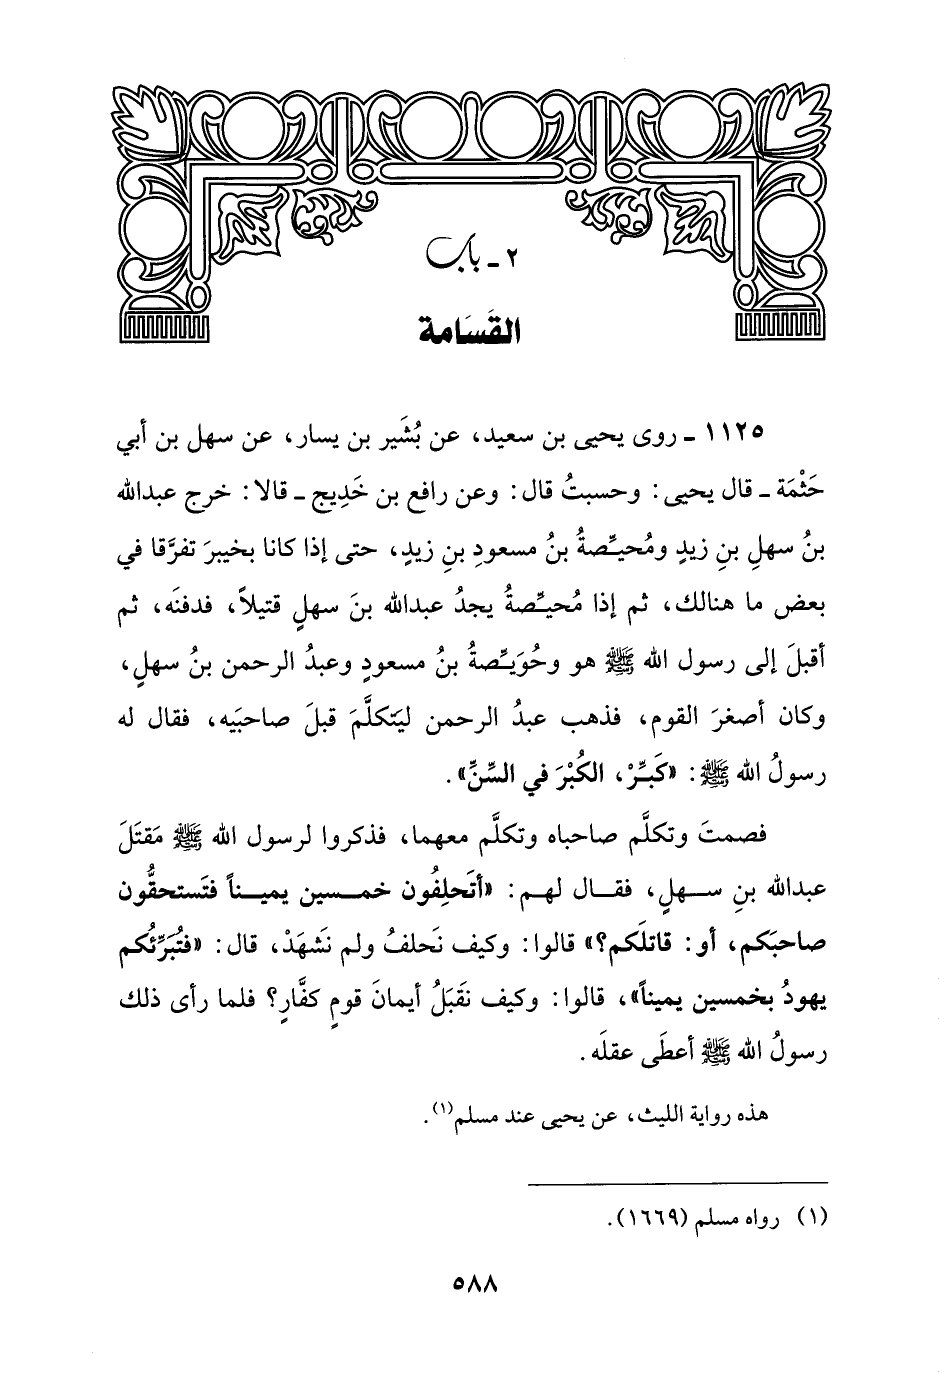 ٢ - باب
القَسَامة
١١٢٥ - روى يحيى بن سعيد، عن بُشَير بن يسار، عن سهل بن أبي
حَثْمَة - قال يحيى: وحسبتُ قال: وعن رافع بن خَدِيج - قالا: خرج عبدالله
بنُ سهلِ بنِ زيدٍ ومُحيِّصةُ بنُ مسعودِ بنِ زيدٍ، حتى إذا كانا بخيبرَ تفرَّقا في
بعض ما هنالك، ثم إذا مُحيِّصةُ يجدُ عبدالله بنَ سهلٍ قتيلاً، فدفنَه، ثم
أقبلَ إلى رسول الله ﷺ هو وحُوَيِّصةُ بنُ مسعودٍ وعبدُ الرحمن بنُ سهلٍ،
وكان أصغرَ القوم، فذهب عبدُ الرحمن ليَتكلَّمَ قبلَ صاحبَيه، فقال له
رسولُ الله ﷺ: «كَبِّرْ، الكُبْرَ في السِّنِّ».
فصمتَ وتكلَّم صاحباه وتكلَّم معهما، فذكروا لرسول الله ﷺ مَقتَلَ
عبدالله بنِ سهلٍ، فقال لهم: «أتَحلِفُون خمسين يميناً فتَستحقُّون
صاحبَكم، أو: قاتلَكم؟» قالوا: وكيف نَحلفُ ولم نَشهَدْ، قال: «فتُبَرِّئُكم
يهودُ بخمسين يميناً»، قالوا: وكيف نقبَلُ أيمانَ قومٍ كفَّارٍ؟ فلما رأى ذلك
رسولُ الله ﷺ أعطَى عقلَه.
هذه رواية الليث، عن يحيى عند مسلم(١).
(١) رواه مسلم (١٦٦٩).
٥٨٨